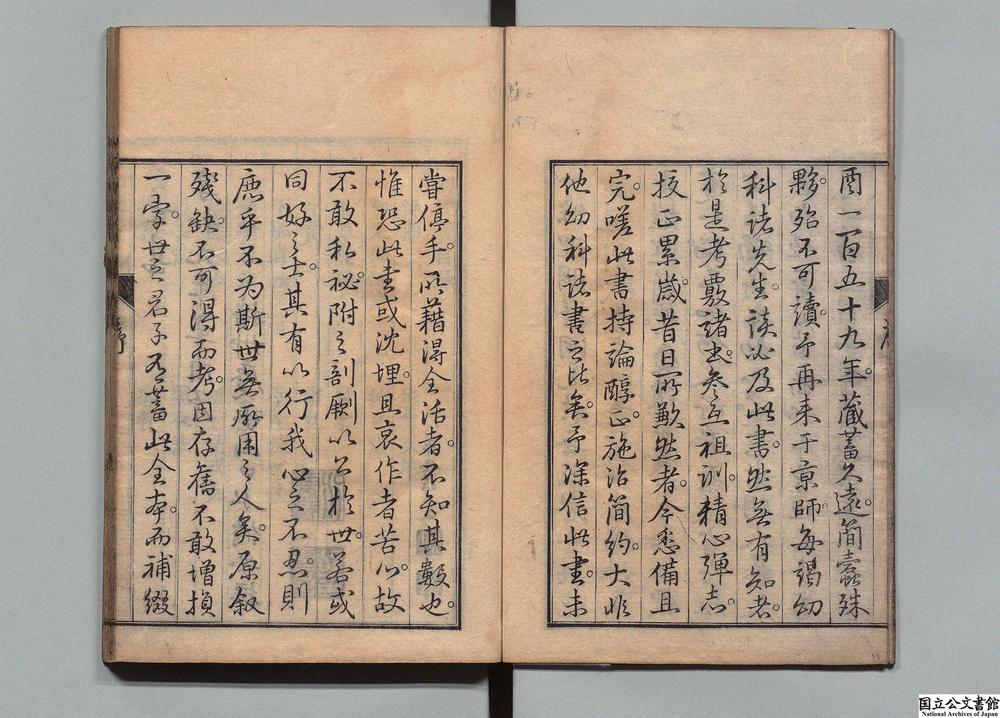 酉一百五十九年。藏蓄久遠。簡蠹殊
夥。殆不可讀。予再来于京師。每謁幼
科諸先生。談必及此書。然無有知者。
於是考覈諸書。參互祖訓。精心彈志。
挍正累歲。昔日所歉然者。今悉備且
完。嗟此書持論醇正。施治簡約。大非
他幼科諸書之比矣。予深信此書。未
嘗停手。所藉得全活者。不知其數也。
惟恐此書或沈埋。且哀作者苦心。故
不敢私秘。附之剖劂以公於世。若或
同好之士。其有以行我心之不忍。則
庶乎不为斯世無所用之人矣。原叙
殘缺。不可得而考。因存舊不敢增損
一字。世之君子有蓄此全本。而補綴
序
国立公文書館
National Archives of Japan